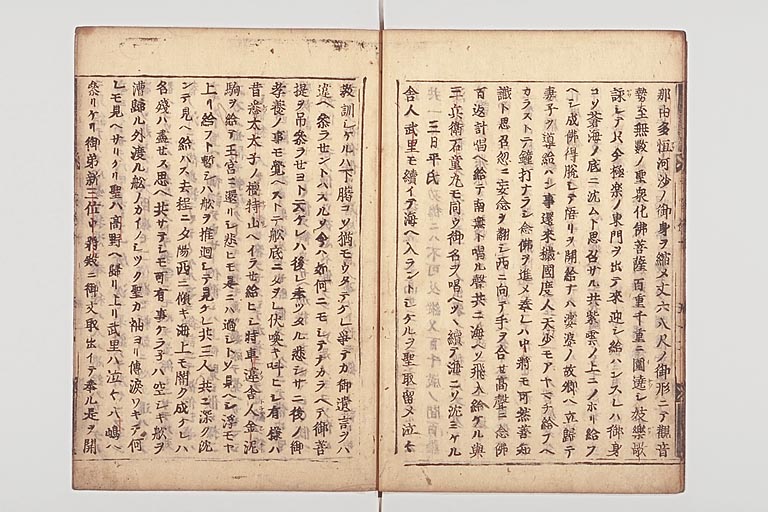 那由多恒河沙ノ御身ヲ縮メ丈六八尺ノ御形ニテ観音
勢至無数ノ聖衆化佛菩薩百重千重ニ圍遶シ妓樂歌
詠シテ只今極楽ノ東門ヲ出テ來迎シ給ハンスレハ御身
コソ蒼海ノ底ニ沈ムト思召サル共紫雲ノ上ニノホリ給フ
ヘシ成佛得脱シテ悟リヲ開給ナハ娑婆ノ故郷ヘ立歸テ
妻子ヲ導給ハン事還來穢國度人天少モアヤマチ給フヘ
カラストテ鐘打ナラシ念佛ヲ進メ奉レハ中将モ可然善知
識ト思召忽ニ妄念ヲ翻シ西ニ向テ手ヲ合セ高聲ニ念佛
百返計唱ヘ給テ南無ト唱ル聲共ニ海ヘソ飛入給ケル與
三兵衛石童丸モ同ク御名ヲ唱ヘツヽ續テ海ニソ沈ミケル
三日平氏
舎人武里モ續イテ海ヘ入ラントシケルヲ聖取留メ泣々
教訓シケルハ下﨟コソ猶モウタテケレ争テカ御遺言ヲハ
違ヘ参ラセントハスルソ今ハ如何ニモシテナカラヘテ御菩
提ヲ吊参ラセヨト云ケレハ後レ奉ツタル悲シサニ後ノ御
孝養ノ事モ覺ヘストテ舩底ニタヲレ伏喚キ叫ヒシ有様ハ
昔悉太太子ノ檀特山ヘイラセ給ヒシ時車違舎人金泥
駒ヲ給テ王宮ニ還リシ悲ヒモ是ニハ過シトソ見ヘシ浮モヤ
上リ給フト暫シハ舩ヲ推迴シテ見ケレ共三人共ニ深ク沈
ンテ見ヘ給ハス去程ニ夕陽西ニ傾キ海上モ闇ク成ケレハ
名残ハ盡セス思ヘ共サテシモ可有事ナラ子ハ空シキ舩ヲ
漕歸ル外渡ル舩ノカイノシツク聖カ袖ヨリ傳涙ワキテ何
レモ見ヘサリケリ聖ハ高野ヘ歸リ上リ武里ハ泣々八嶋ヘ
参リケリ御弟新三位中将殿ニ御文取出イテ奉ル是ヲ開